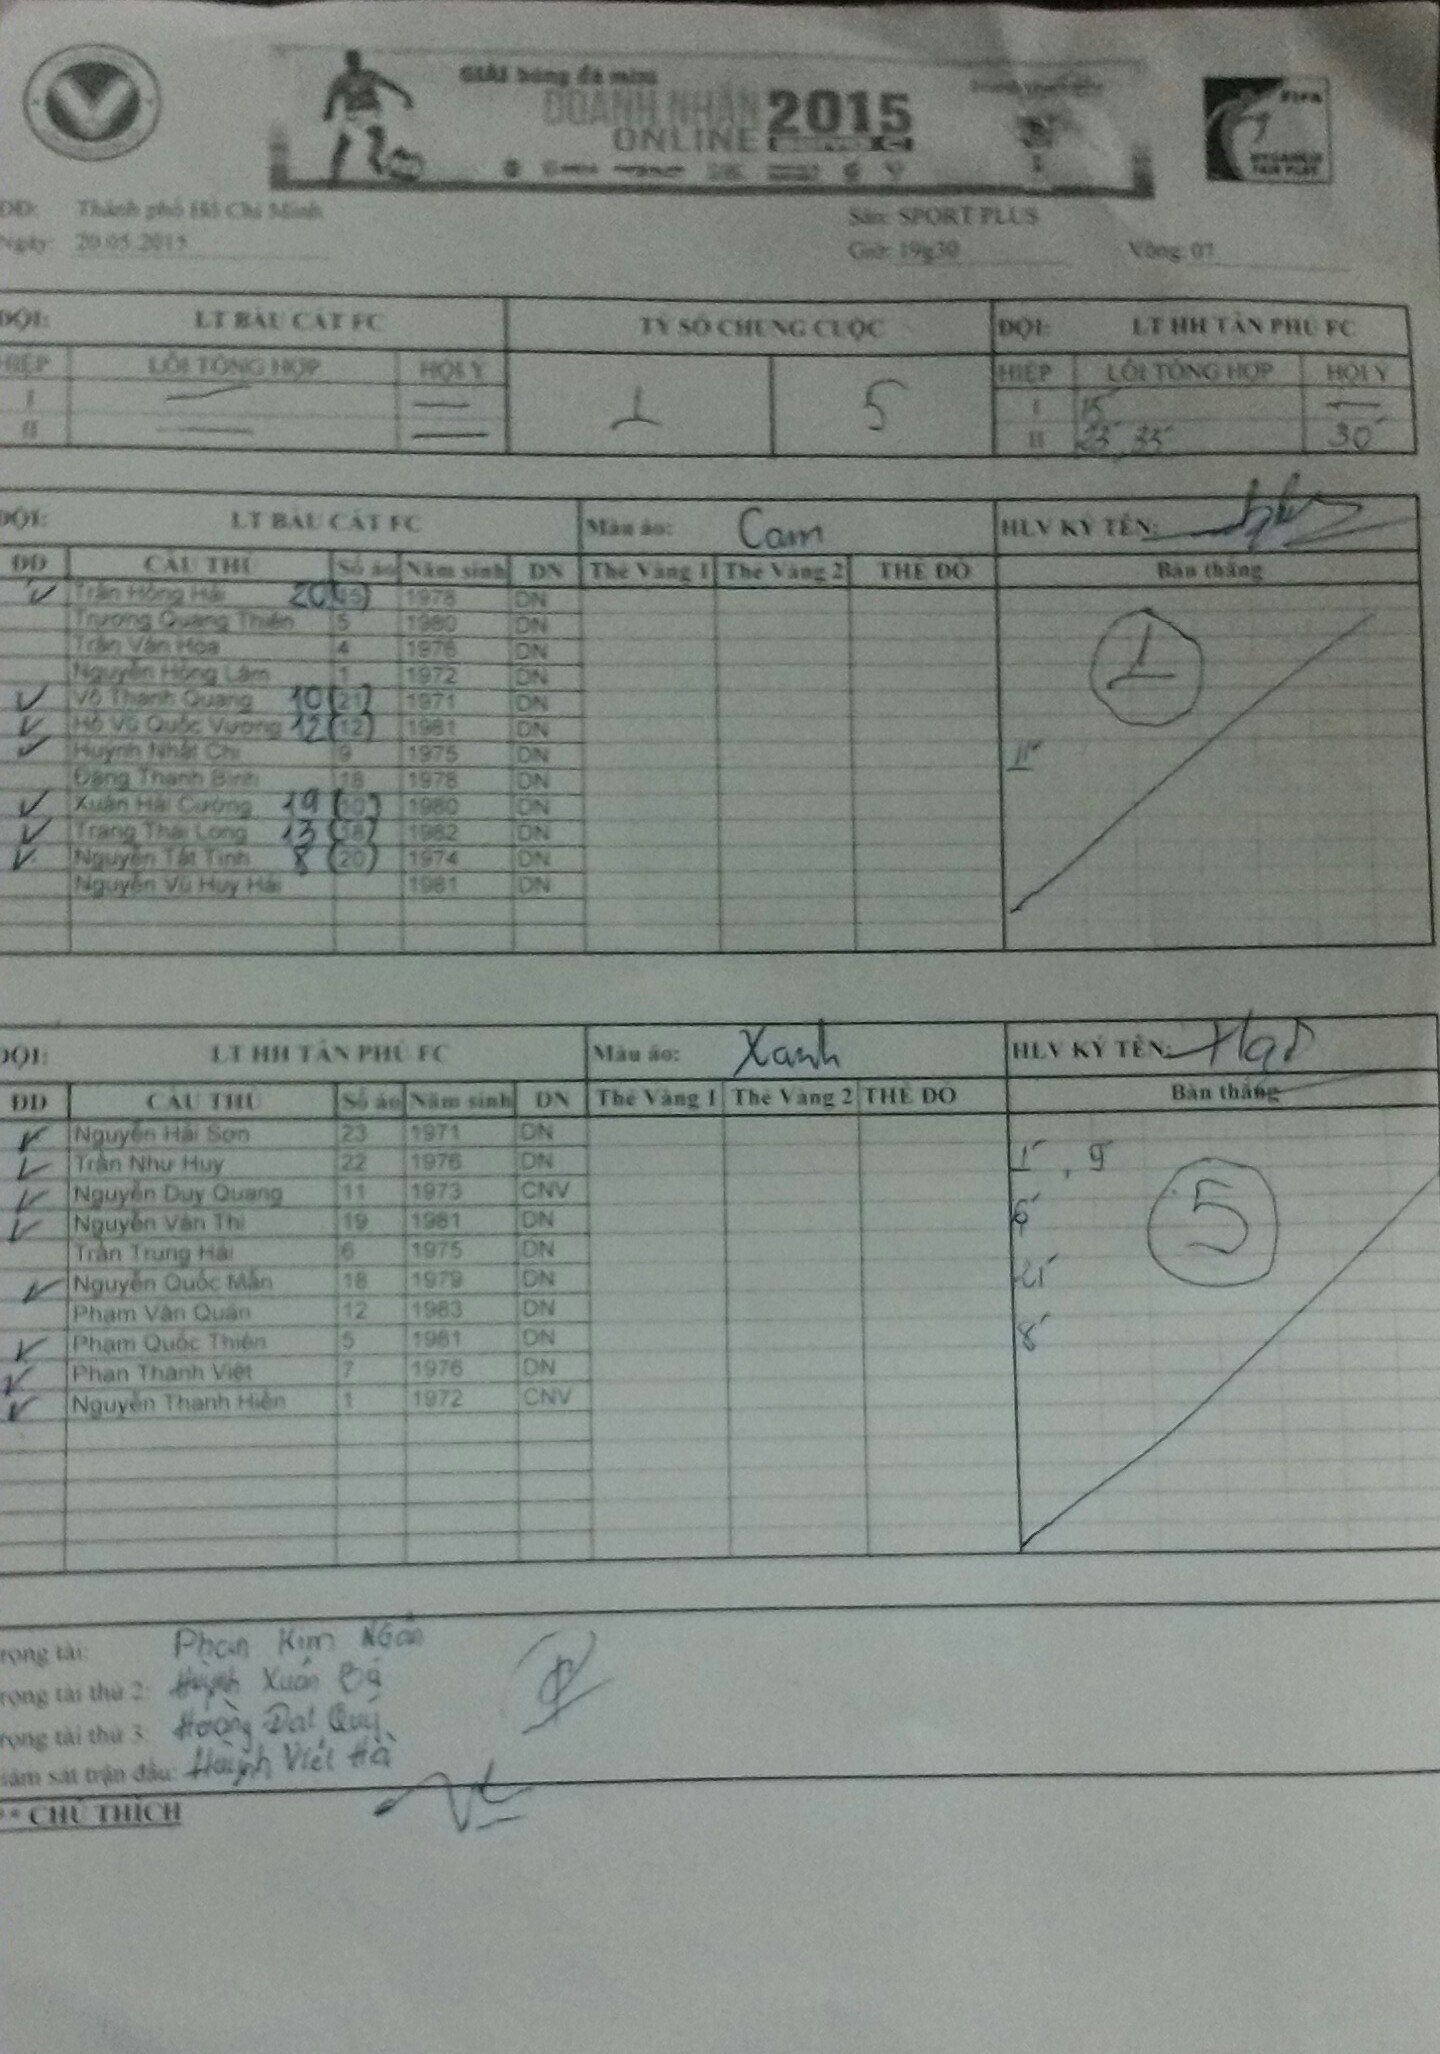 GIẢI bóng đá mini
DOANH NHÂN
ONLINE 2015
FIFA
ĐĐ: Thành phố Hồ Chí Minh Sân: SPORT PLUS
Ngày: 20.05.2015 Giờ: 19g30 Vòng: 07
ĐỘI: LT BÀU CÁT FC TỶ SỐ CHUNG CUỘC ĐỘI: LT HH TÂN PHÚ FC
HIỆP LỖI TỔNG HỢP HỘI Ý 1 5 HIỆP LỖI TỔNG HỢP HỘI Ý
I — — I 15' —
II — — II 23', 35' 30'
ĐỘI: LT BÀU CÁT FC Màu áo: Cam HLV KÝ TÊN:
ĐD CẦU THỦ Số áo Năm sinh DN Thẻ Vàng 1 Thẻ Vàng 2 THẺ ĐỎ Bàn thắng
Trần Hồng Hải 20 1978 DN
Trương Quang Thiên 5 1980 DN
Trần Văn Hòa 4 1976 DN 1
Nguyễn Hồng Lâm 1 1972 DN
Võ Thanh Quang 10 (21) 1971 DN
Hồ Vũ Quốc Vương 12 (12) 1981 DN
Huỳnh Nhật Chi 9 1975 DN 11'
Đặng Thanh Bình 18 1978 DN
Xuân Hải Cường 19 (10) 1980 DN
Trang Thái Long 13 1982 DN
Nguyễn Tất Tính 8 (20) 1974 DN
Nguyễn Vũ Huy Hải 1981 DN
ĐỘI: LT HH TÂN PHÚ FC Màu áo: Xanh HLV KÝ TÊN:
ĐD CẦU THỦ Số áo Năm sinh DN Thẻ Vàng 1 Thẻ Vàng 2 THẺ ĐỎ Bàn thắng
Nguyễn Hải Sơn 23 1971 DN
Trần Như Huy 22 1976 DN 1', 9'
Nguyễn Duy Quang 11 1973 CNV
Nguyễn Văn Thi 19 1981 DN 6' 5
Trần Trung Hải 6 1975 DN
Nguyễn Quốc Mẫn 18 1979 DN 21'
Phạm Văn Quân 12 1983 DN
Phạm Quốc Thiên 5 1981 DN 8'
Phan Thành Việt 7 1976 DN
Nguyễn Thanh Hiền 1 1972 CNV
rọng tài: Phan Kim Ngân
rọng tài thứ 2: Huỳnh Xuân
rọng tài thứ 3: Hoàng Đạt Quý
iám sát trận đấu: Huỳnh Viết Hà
** CHÚ THÍCH